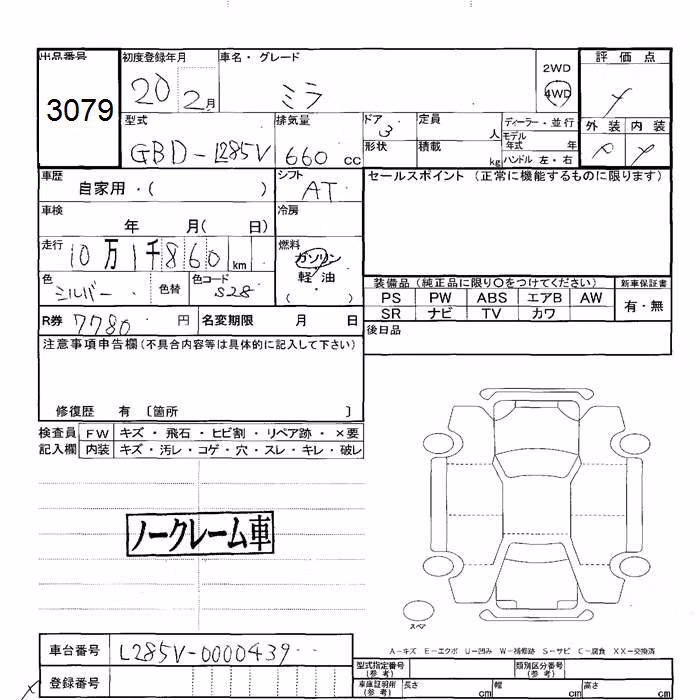 出品番号 初度登録年月 車名・グレード 2WD 評価点
3079 20 2月 ミラ 4WD
外装 内装
型式 排気量 ドア 定員 ディーラー・並行
GBD-L285V 660cc 3 人 モデル年式 年
形状 積載 kg ハンドル 左・右
車歴 シフト セールスポイント (正常に機能するものに限ります)
自家用・( ) AT
車検 冷房
年 月( 日)
走行 燃料
10万1千860km ガソリン
軽・油
( )
色 色替 色コード 装備品 (純正品に限り○をつけてください) 新車保証書
シルバー S28 PS PW ABS エアB AW 有・無
SR ナビ TV カワ
R券 7780 円 名変期限 月 日 後日品
注意事項申告欄 (不具合内容等は具体的に記入して下さい)
修復歴 有 〔箇所 〕
検査員 FW キズ・飛石・ヒビ割・リペア跡・×要
記入欄 内装 キズ・汚レ・コゲ・穴・スレ・キレ・破レ
ノークレーム車
スペア
A-キズ E-エクボ U-凹み W-補修跡 S-サビ C-腐食 XX-交換済
車台番号 L285V-0000439
型式指定番号 (参考) 類別区分番号 (参考)
登録番号 車庫証明用 (参考) 長さ cm 幅 cm 高さ cm